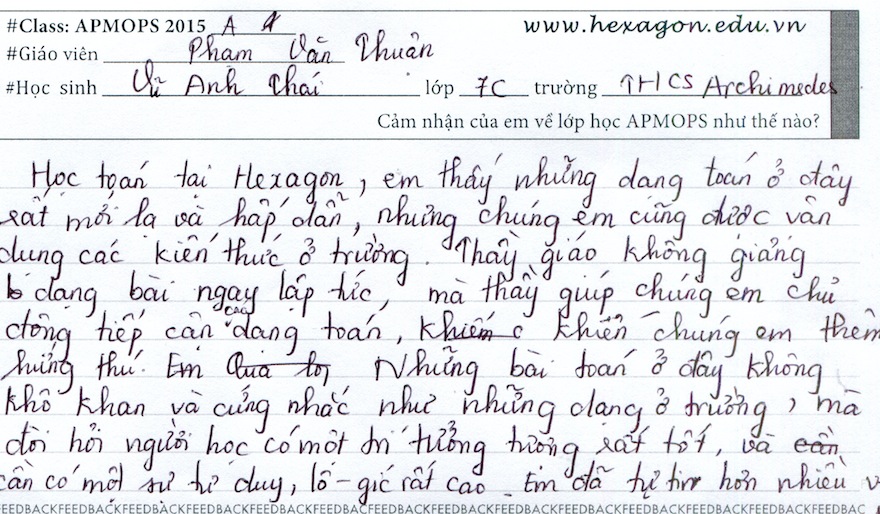 #Class: APMOPS 2015 A 1
www.hexagon.edu.vn
#Giáo viên Phạm Văn Thuận
#Học sinh Vũ Anh Thái lớp 7C trường THCS Archimedes
Cảm nhận của em về lớp học APMOPS như thế nào?
Học toán tại Hexagon, em thấy những dạng toán ở đây
rất mới lạ và hấp dẫn, nhưng chúng em cũng được vận
dụng các kiến thức ở trường. Thầy giáo không giảng
dạng bài ngay lập tức, mà thầy giúp chúng em chủ
động tiếp cận các dạng toán, khiến chúng em thêm
hứng thú. Em Những bài toán ở đây không
khô khan và cứng nhắc như những dạng ở trường, mà
đòi hỏi người học có một trí tưởng tượng rất tốt, và
cần có một sự tư duy, lô-gic rất cao. Em đã tự tin hơn nhiều v
FEEDBACKFEEDBACKFEEDBACKFEEDBACKFEEDBACKFEEDBACKFEEDBACKFEEDBACKFEEDBACKFEEDBACKFEEDBACKFEEDBACKFEEDBACKFEEDBACKFEEDBAC